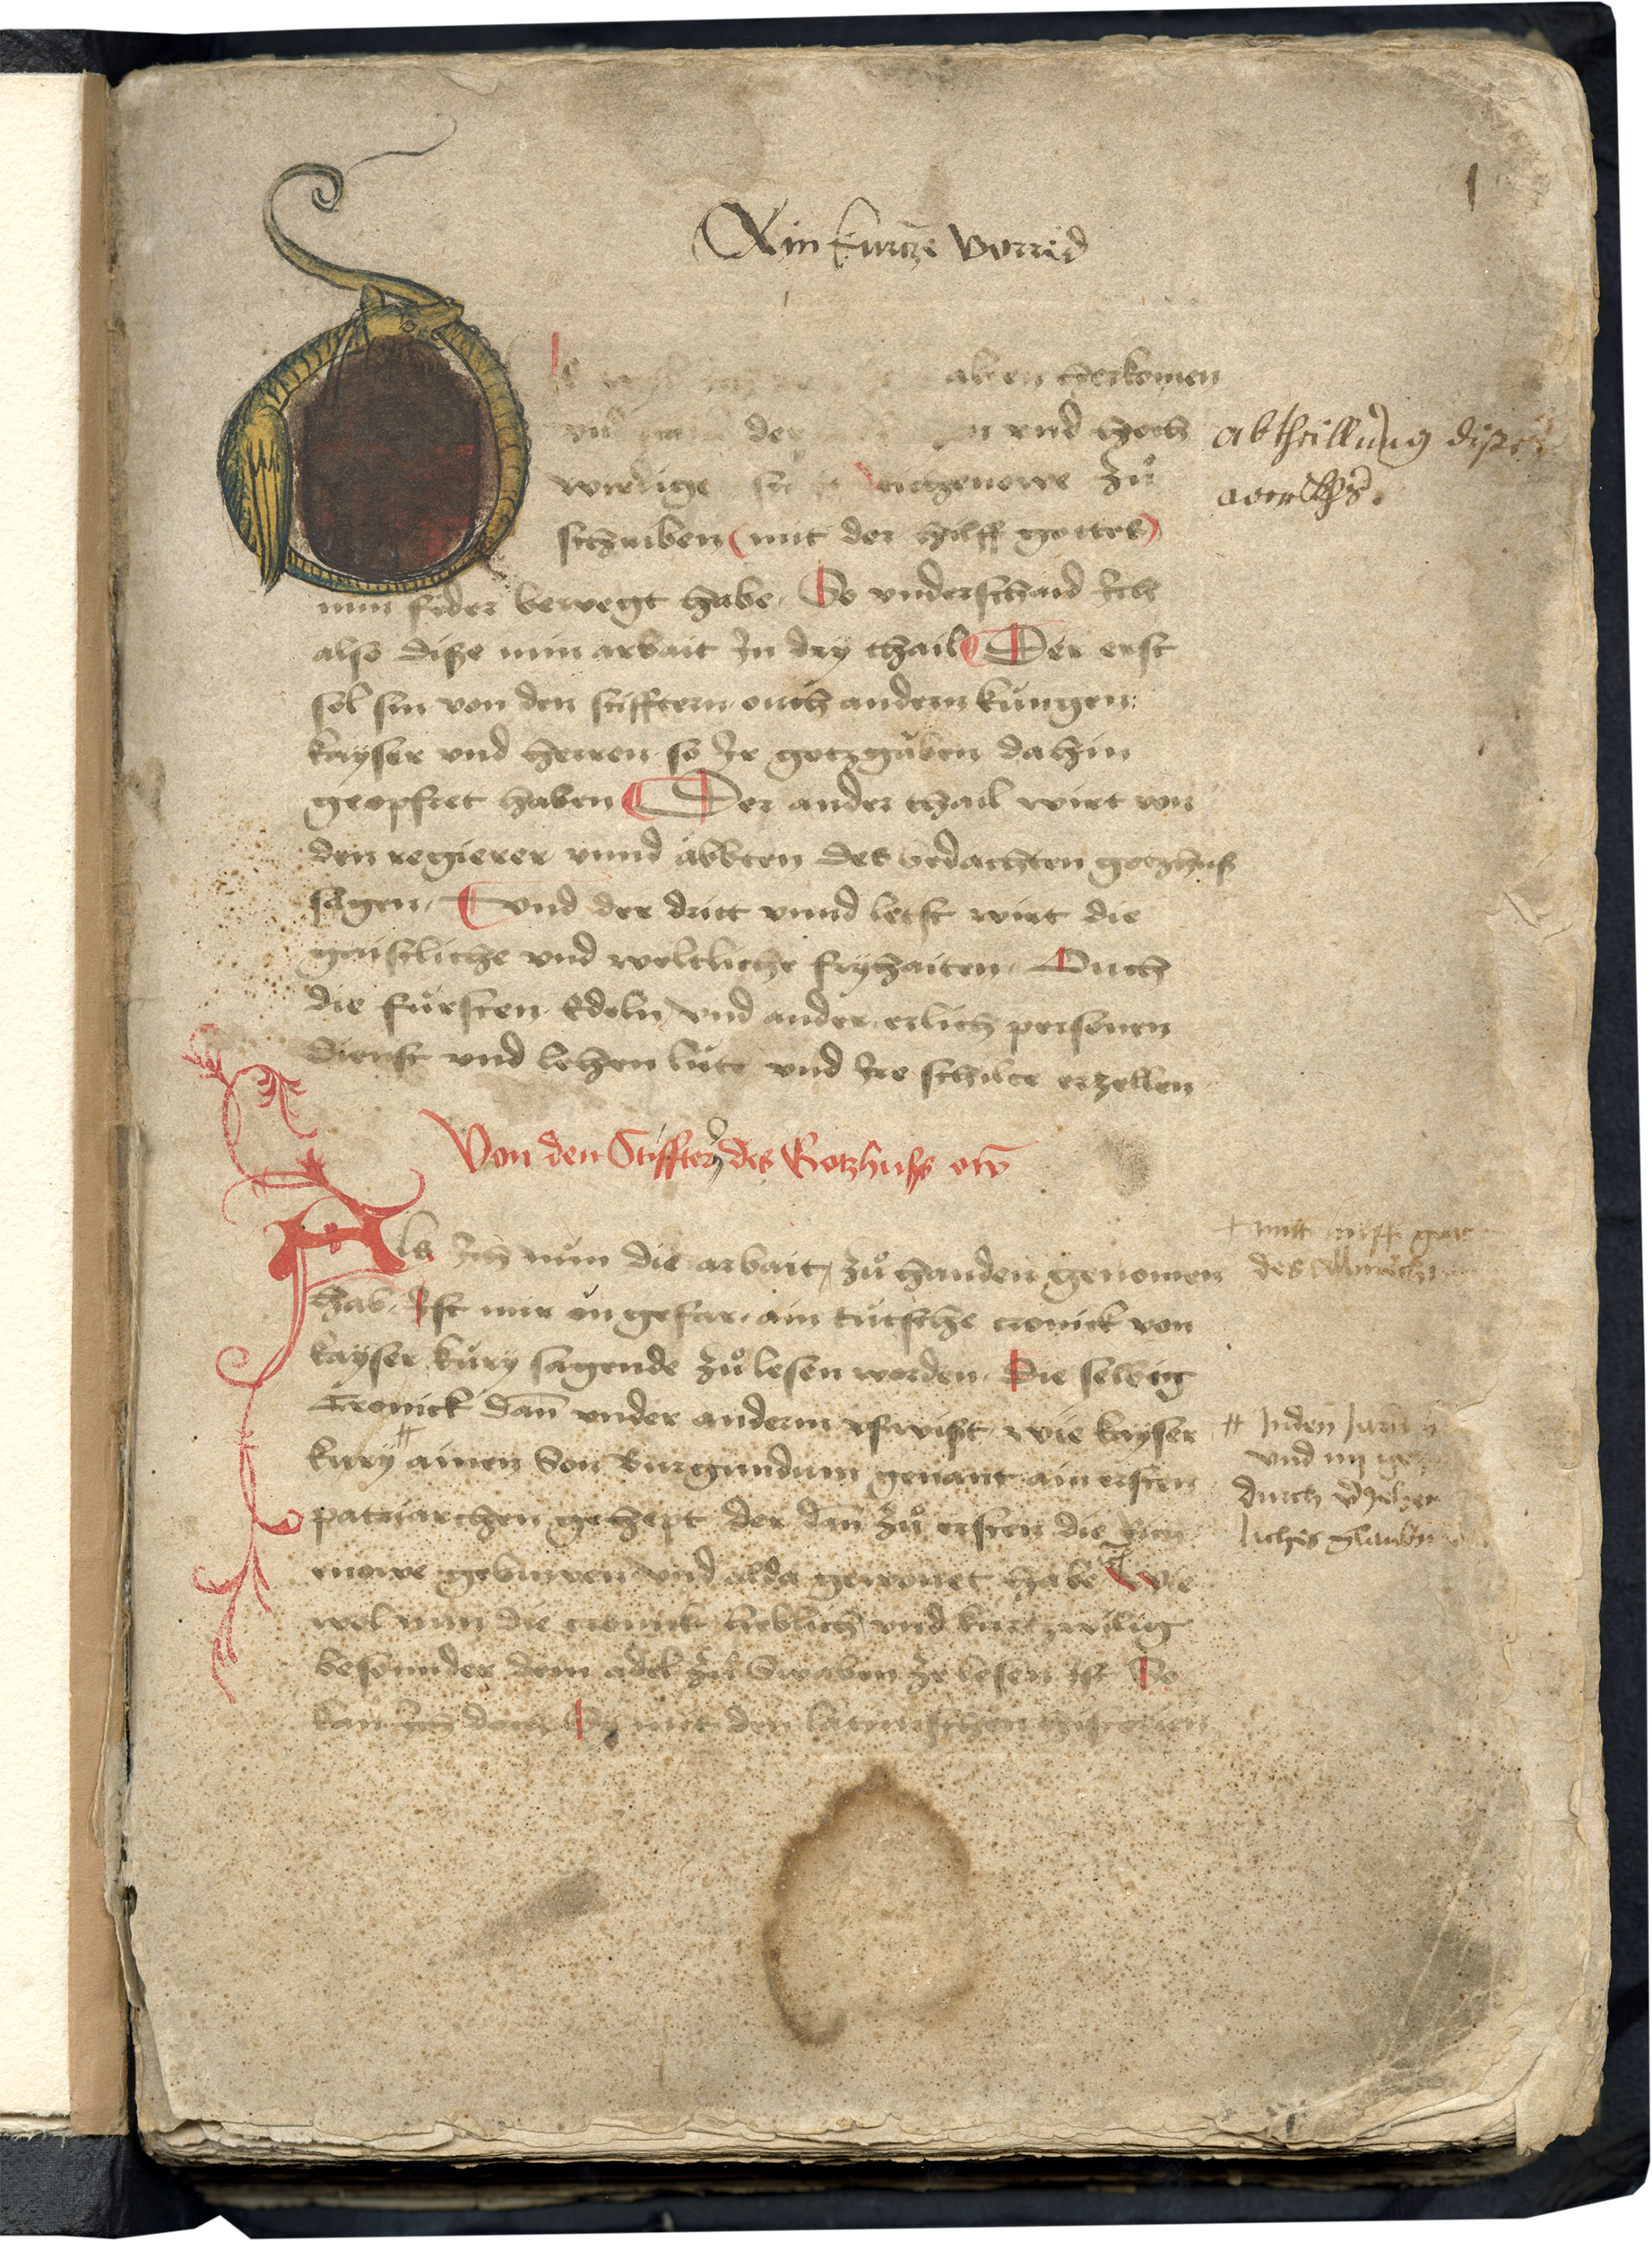 1
Ain kurtze vorred
alten herkomen
der vnd hoch
wirdige ougenowe zů
schriben (mit der hilff gottes)
min feder bewegt habe. So vnderschaid Ich
also diße min arbait In dry thail Der erst
sol sin von den stifftern ouch andern kúngen:
kayser vnd herren so Ir gotzgaben dahin
geopfret haben Der ander thail wirt von
den regierer vnnd äbbten des bedachten gotzhuß
sagen. Vnd der dritt vnnd letst wirt die
gaistliche vnd weltliche fryhaiten. Ouch
die fúrsten Edeln vnd ander erlich personen
dienst vnd lehen lúte vnd Ire schilte erzellen
abtheillung dißes
wercks.
Von den Stifftern des Gotzhuss
Als Ich nun die arbait zů handen genomen
hab. Ist mir on gefar. ain tútsche cronick von
kayser kury sagende zů lesen worden. Die selbig
Cronick dañ vnder anderm vswißt. wie kayser
kury ainen Son Burgundum genant ain ersten
patriarchen gehept der dañ zů ersten die
enowe gebuwen vnd alda gewonet habe Wie
wol nun die cronick lieblich vnd kurtzwilig
besonnder dem adel zů Swaben ze lesen ist So
kan Ich doch Sy mit den latinischen historien
mitt hilff
des
# Inden Jarn
vnd
durch
liches glauben